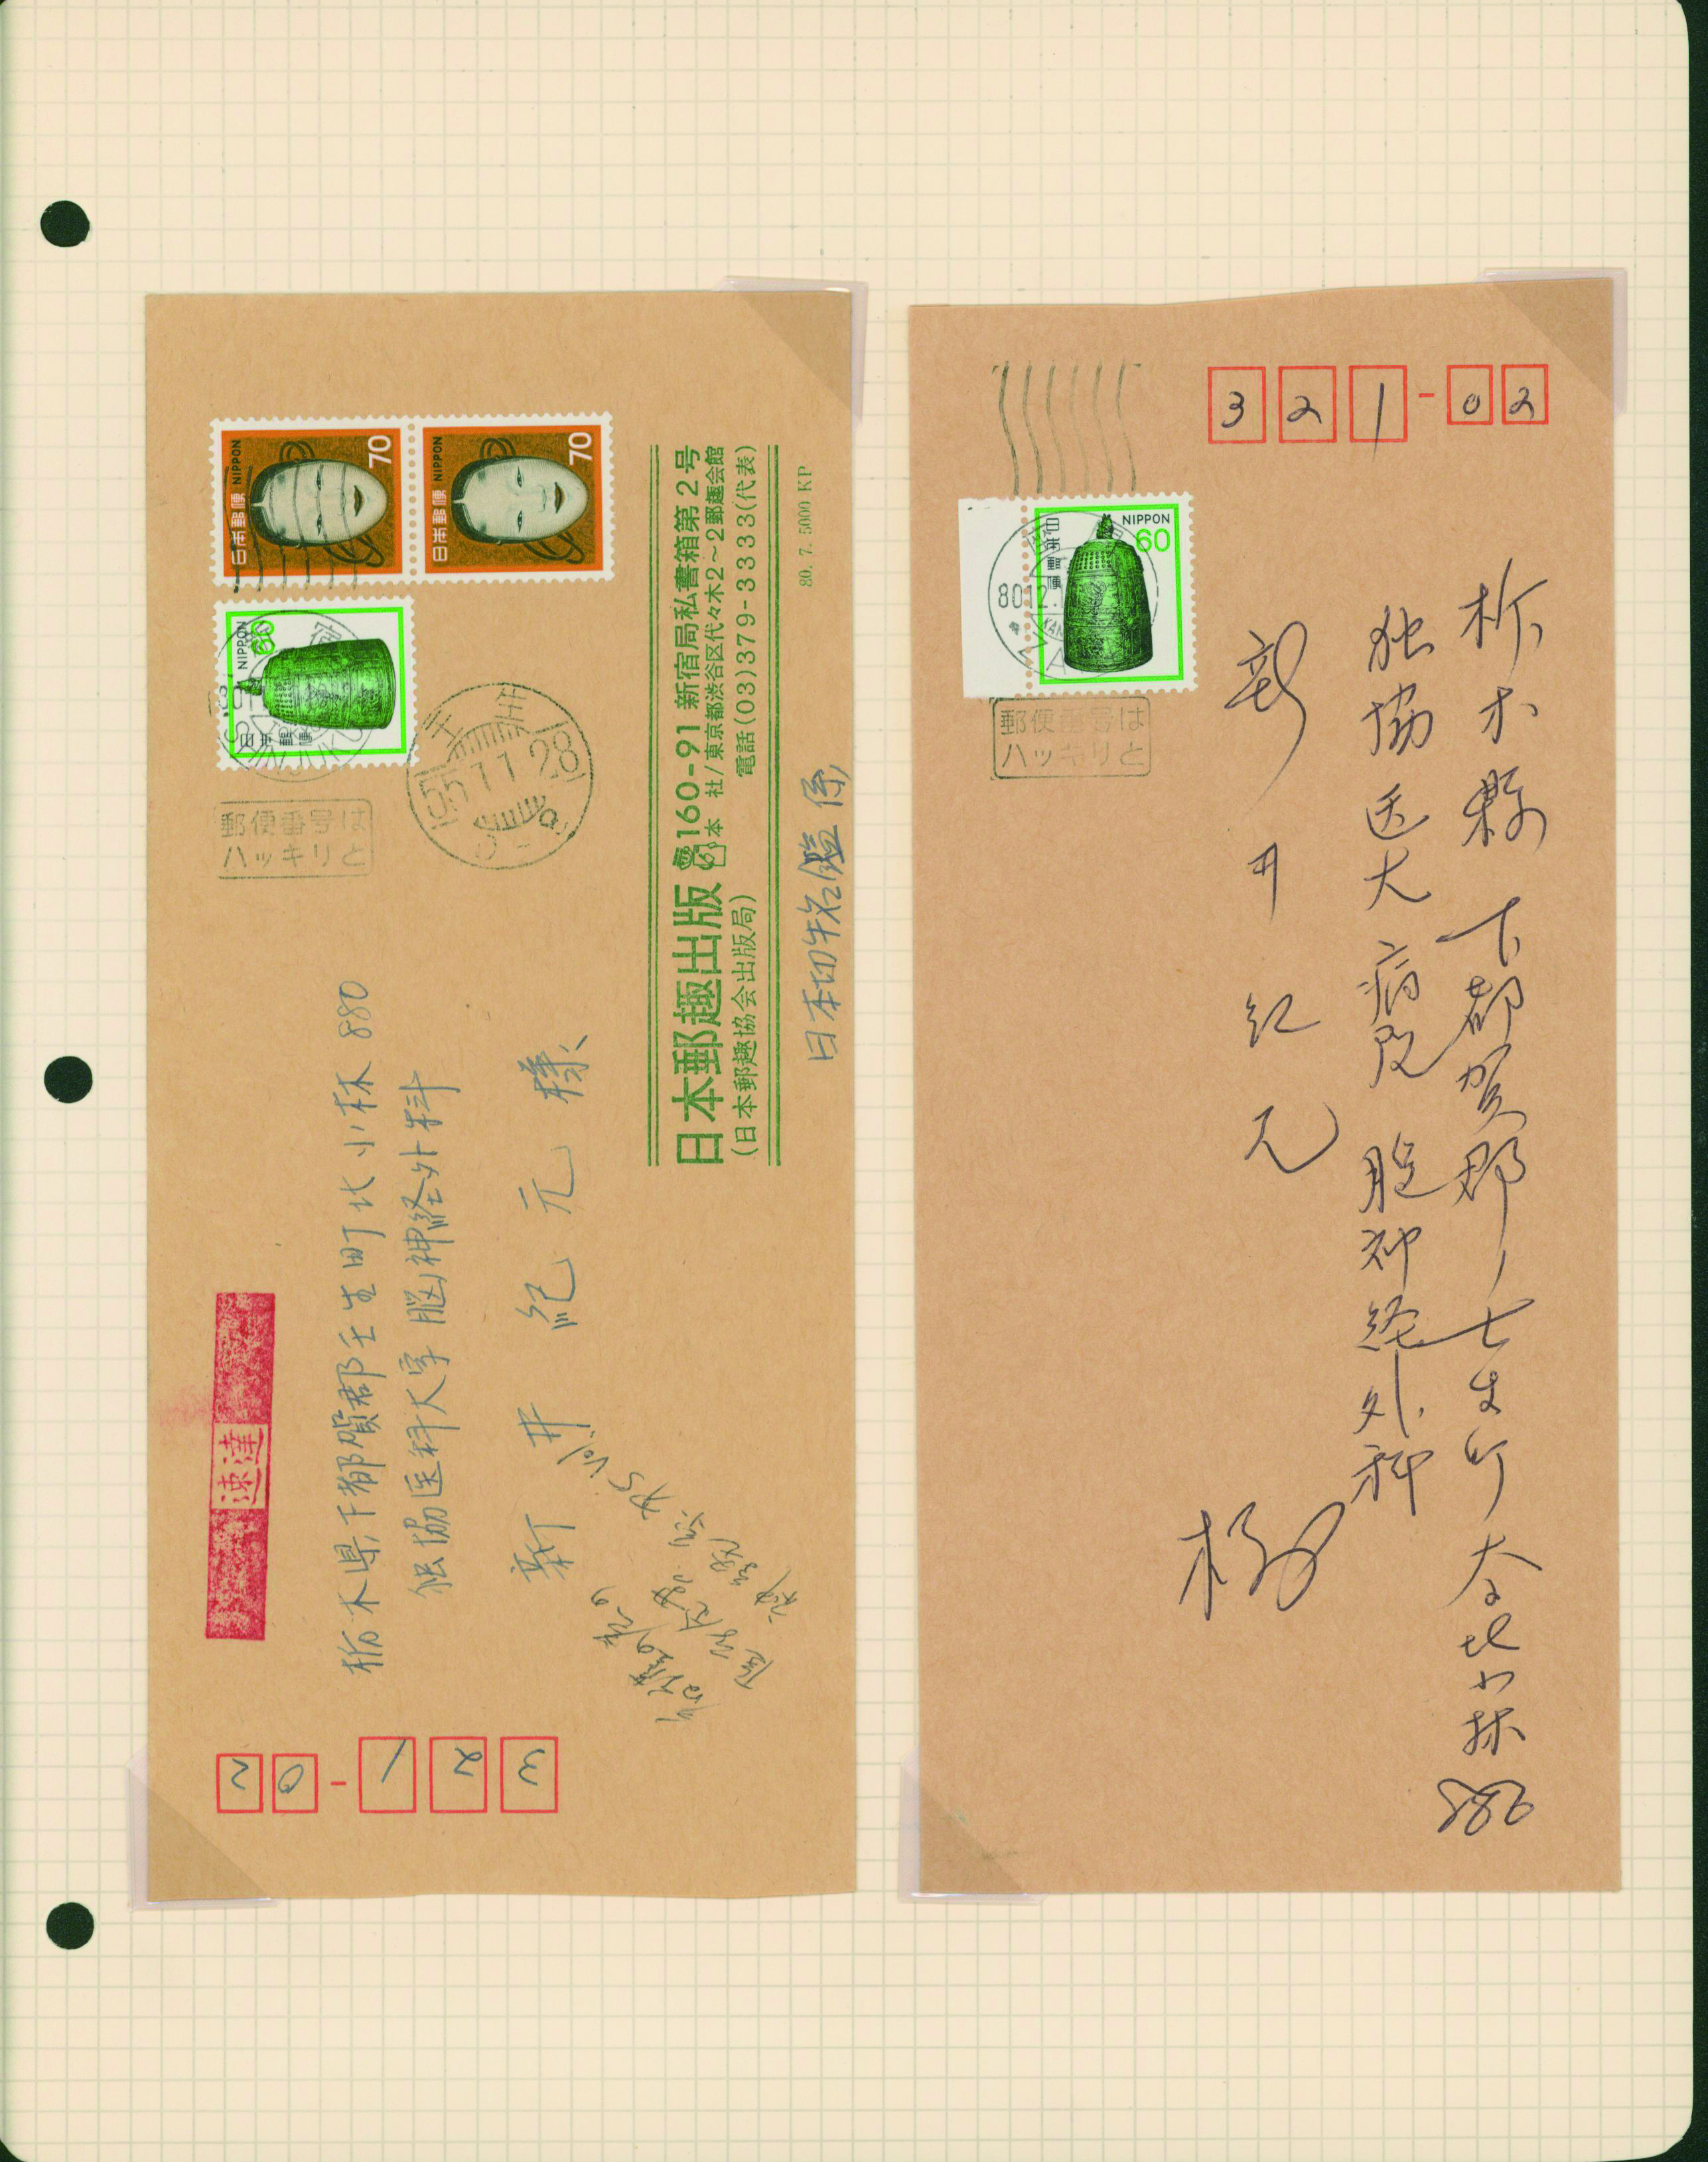 日本郵便 NIPPON
70
日本郵便 NIPPON
70
NIPPON
60
日本郵便
SHINJUKU
郵便番号は
ハッキリと
壬生
55.11.28
日本郵趣出版
(日本郵趣協会出版局)
160-91 新宿局私書箱第2号
本社/東京都渋谷区代々木2~2郵趣会館
電話(03)379-3333(代表)
80. 7. 5000 KP
日本切手名鑑係
速達
栃木県下都賀郡壬生町北小林880
独協医科大学 脳神経外科
新井紀元様
RS Vol.
321-02
321-02
NIPPON
60
日本郵便
80.12.
郵便番号は
ハッキリと
栃木縣下都賀郡壬生町大字北小林880
独協医大病院 脳神経外科
新井紀元
様